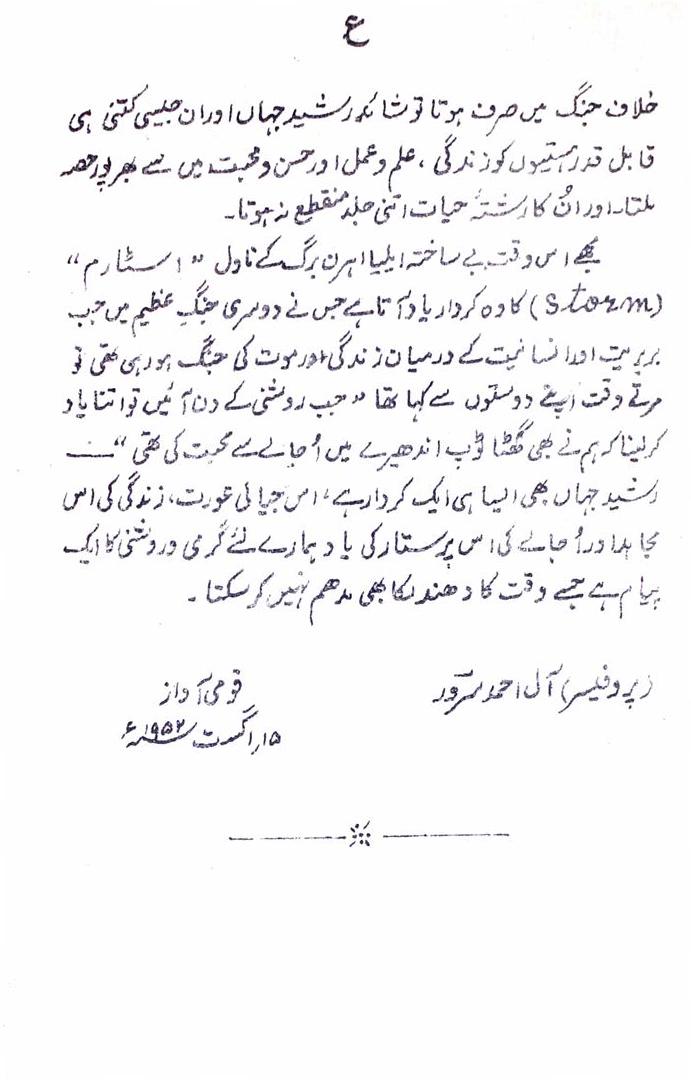 ع
خلاف جنگ میں صرف ہوتا تو شائد رشید جہاں اور ان جیسی کتنی ہی
قابل قدر ہستیوں کو زندگی، علم و عمل اور حسن و محبت میں سے بھرپور حصہ
ملتا۔ اور اُن کا رشتۂ حیات اتنی جلد منقطع نہ ہوتا۔
مجھے اس وقت بے ساختہ ایلیا اہرن برگ کے ناول "اسٹارم"
(Storm) کا وہ کردار یاد آتا ہے جس نے دوسری جنگِ عظیم میں جب
بربریت اور انسانیت کے درمیان زندگی اور موت کی جنگ ہو رہی تھی تو
مرتے وقت اپنے دوستوں سے کہا تھا "جب روشنی کے دن آئیں تو اتنا یاد
کر لینا کہ ہم نے بھی گھٹا ٹوپ اندھیرے میں اُجالے سے محبت کی تھی" ——
رشید جہاں بھی ایسا ہی ایک کردار ہے، اس جیالی عورت، زندگی کی اس
مجاہد اور اُجالے کی اس پرستار کی یاد ہمارے لئے گرمی و روشنی کا ایک
پیام ہے جسے وقت کا دھندلکا بھی مدھم نہیں کر سکتا۔
(پروفیسر) آل احمد سرور
قومی آواز
۱۵ اگست ۱۹۵۲ء